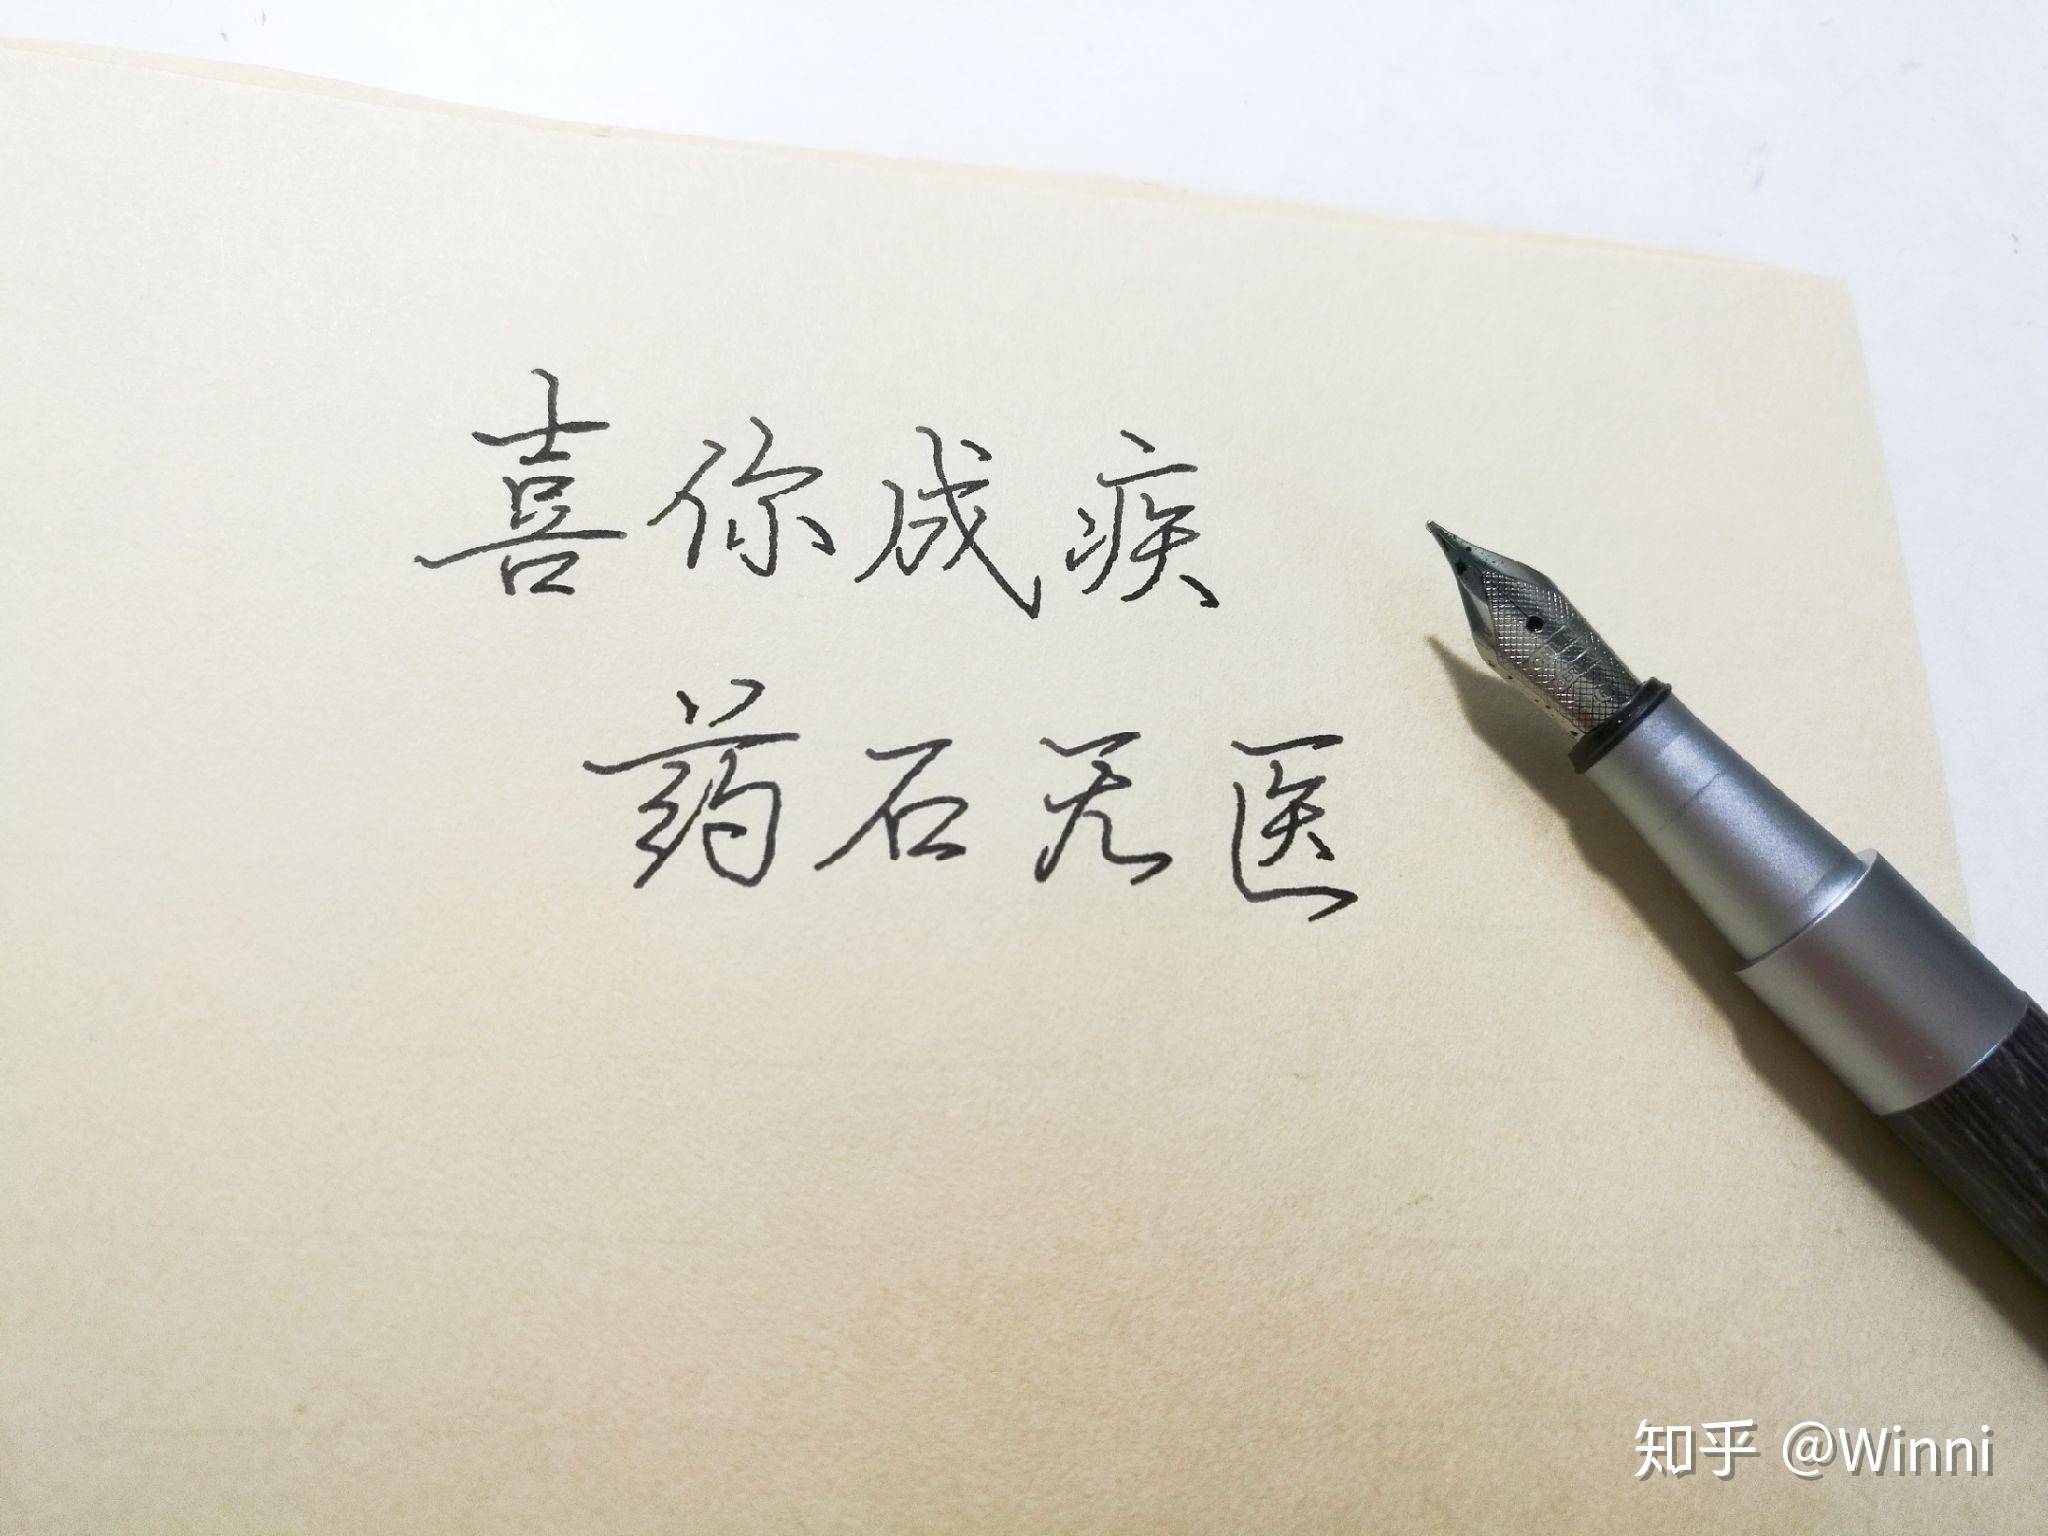 喜你成疾
药石无医
知乎 @Winni